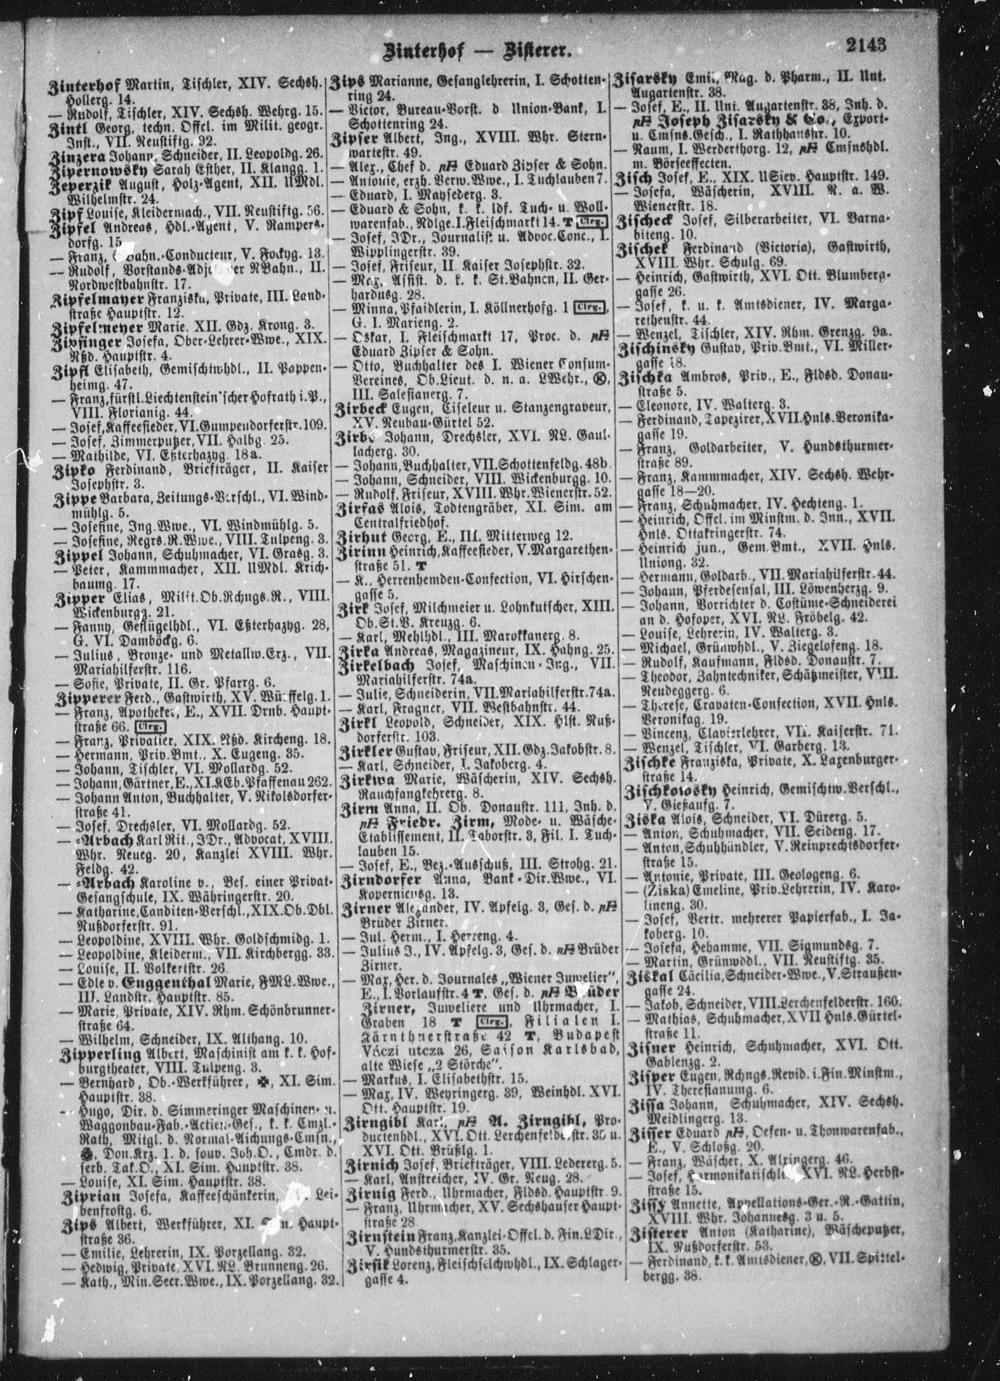 Zinterhof — Zisterer.
2143
Zinterhof Martin, Tischler, XIV. Sechsh.
Hollerg. 14.
— Rudolf, Tischler, XIV. Sechsh. Wehrg. 15.
Zintl Georg, techn. Offcl. im Milit. geogr.
Inst., VII. Neustiftg. 92.
Zinzera Johann, Schneider, II. Leopoldg. 26.
Zipernowsky Sarah Esther, II. Klangg. 1.
Zeperzik August, Holz-Agent, XII. UMdl.
Wilhelmstr. 24.
Zipf Louise, Kleidermach., VII. Neustiftg. 56.
Zipfel Andreas, Hdl.-Agent, V. Rampers-
dorfg. 15
— Franz, Bahn.-Conducteur, V. Fockyg. 13.
— Rudolf, Vorstands-Adj. der NBahn., II.
Nordwestbahnstr. 17.
Zipfelmayer Franziska, Private, III. Land-
straße Hauptstr. 12.
Zipfelmeyer Marie, XII. Gdz. Krong. 3.
Zipfinger Josefa, Ober-Lehrer-Wwe., XIX.
Nßd. Hauptstr. 4.
Zipfl Elisabeth, Gemischtwhdl., II. Pappen-
heimg. 47.
— Franz, fürstl. Liechtenstein'scher Hofrath i. P.,
VIII. Florianig. 44.
— Josef, Kaffeesieder, VI. Gumpendorferstr. 109.
— Josef, Zimmerputzer, VII. Halbg. 25.
— Mathilde, VI. Eßterhazyg. 18a.
Zipko Ferdinand, Briefträger, II. Kaiser
Josephstr. 3.
Zippe Barbara, Zeitungs-Verschl., VI. Wind-
mühlg. 5.
— Josefine, Ing. Wwe., VI. Windmühlg. 5.
— Josefine, Regrs. R. Wwe., VIII. Tulpeng. 3.
Zippel Johann, Schuhmacher, VI. Grasg. 3.
— Peter, Kammmacher, XII. UMdl. Krich-
baumg. 17.
Zipper Elias, Milit. Ob. Rchngs. R., VIII.
Wickenburgg. 21.
— Fanny, Geflügelhdl., VI. Eßterhazyg. 28,
G. VI. Damböckg. 6.
— Julius, Bronze- und Metallw. Erz., VII.
Mariahilferstr. 116.
— Sofie, Private, II. Gr. Pfarrg. 6.
Zipperer Ferd., Gastwirth, XV. Würffelg. 1.
— Franz, Apotheker, E., XVII. Drnb. Haupt-
straße 66. Clrg.
— Franz, Privatier, XIX. Nßd. Kircheng. 18.
— Hermann, Priv. Bmt., X. Eugeng. 35.
— Johann, Tischler, VI. Mollardg. 52.
— Johann, Gärtner, E., XI. KEb. Pfaffenau 262.
— Johann Anton, Buchhalter, V. Nikolsdorfer-
straße 41.
— Josef, Drechsler, VI. Mollardg. 52.
— -Arbach Karl Rit., JDr., Advocat, XVIII.
Whr. Neueg. 20, Kanzlei XVIII. Whr.
Feldg. 42.
— -Arbach Karoline v., Bes. einer Privat-
Gesangschule, IX. Währingerstr. 20.
— Katharine, Canditen-Verschl., XIX. Ob. Dbl.
Nußdorferstr. 91.
— Leopoldine, XVIII. Whr. Goldschmidg. 1.
— Leopoldine, Kleiderm., VII. Kirchbergg. 33.
— Louise, II. Volkertstr. 26.
— Edle v. Euggenthal Marie, FML. Wwe.,
III. Landstr. Hauptstr. 85.
— Marie, Private, XIV. Rhm. Schönbrunner-
straße 64.
— Wilhelm, Schneider, IX. Althang. 10.
Zipperling Albert, Maschinist am k. k. Hof-
burgtheater, VIII. Tulpeng. 3.
— Bernhard, Ob.-Werkführer, ✠, XI. Sim.
Hauptstr. 38.
— Hugo, Dir. d. Simmeringer Maschinen- u.
Waggonbau-Fab.-Actien-Ges., k. k. Cmzl.-
Rath, Mitgl. d. Normal-Aichungs-Cmsn.,
Don. Krz. 1. d. souv. Joh. O., Cmdr. d.
serb. Tak. O., XI. Sim. Hauptstr. 38.
— Louise, XI. Sim. Hauptstr. 38.
Ziprian Josefa, Kaffeeschänkerin, Lei-
benfrostg. 6.
Zips Albert, Werkführer, XI. Sim. Haupt-
straße 36.
— Emilie, Lehrerin, IX. Porzellang. 32.
— Hedwig, Private, XVI. NL. Brunneng. 26.
— Kath., Min. Secr. Wwe., IX. Porzellang. 32.
Zips Marianne, Gesanglehrerin, I. Schotten-
ring 24.
— Victor, Bureau-Vorst. d. Union-Bank, I.
Schottenring 24.
Zipser Albert, Ing., XVIII. Whr. Stern-
wartestr. 49.
— Alex., Chef d. Eduard Zipser & Sohn.
— Antonie, erzh. Verw. Wwe., I. Tuchlauben 7.
— Eduard, I. Maysederg. 3.
— Eduard & Sohn, k. k. ldf. Tuch- u. Woll-
warenfab., Ndlge. I. Fleischmarkt 14. T Clrg.
— Josef, JDr., Journalist u. Advoc. Conc., I.
Wipplingerstr. 39.
— Josef, Friseur, II. Kaiser Josephstr. 32.
— Max, Assist. d. k. k. St. Bahnen, II. Ger-
hardusg. 28.
— Minna, Pfaidlerin, I. Köllnerhofg. 1 Clrg.,
G. I. Marieng. 2.
— Oskar, I. Fleischmarkt 17, Proc. d.
Eduard Zipser & Sohn.
— Otto, Buchhalter des I. Wiener Consum-
Vereines, Ob. Lieut. d. n. a. LWehr., Ⓚ,
III. Salesianerg. 7.
Zirbeck Eugen, Ciseleur u. Stanzengraveur,
XV. Neubau-Gürtel 52.
Zirbs Johann, Drechsler, XVI. NL. Gaul-
lacherg. 30.
— Johann, Buchhalter, VII. Schottenfeldg. 48b.
— Johann, Schneider, VIII. Wickenburgg. 10.
— Rudolf, Friseur, XVIII. Whr. Wienerstr. 52.
Zirfas Alois, Todtengräber, XI. Sim. am
Centralfriedhof.
Zirhut Georg, E., III. Mitterweg 12.
Zirinn Heinrich, Kaffeesieder, V. Margarethen-
straße 51. T
— K., Herrenhemden-Confection, VI. Hirschen-
gasse 5.
Zirk Josef, Milchmeier u. Lohnkutscher, XIII.
Ob. St. V. Kreuzg. 6.
— Karl, Mehlhdl., III. Marokkanerg. 8.
Zirka Andreas, Magazineur, IX. Hahng. 25.
Zirkelbach Josef, Maschinen-Ing., VII.
Mariahilferstr. 74a.
— Julie, Schneiderin, VII. Mariahilferstr. 74a.
— Karl, Fragner, VII. Westbahnstr. 44.
Zirkl Leopold, Schneider, XIX. Hlst. Nuß-
dorferstr. 103.
Zirkler Gustav, Friseur, XII. Gdz. Jakobstr. 8.
— Karl, Schneider, I. Jakoberg. 4.
Zirkwa Marie, Wäscherin, XIV. Sechsh.
Rauchfangkehrerg. 8.
Zirm Anna, II. Ob. Donaustr. 111, Inh. d.
Friedr. Zirm, Mode- u. Wäsche-
Etablissement, II. Taborstr. 3, Fil. I. Tuch-
lauben 15.
— Josef, E., Bez.-Ausschuß, III. Strohg. 21.
Zirndorfer Anna, Bank-Dir. Wwe., VI.
Kopernicusg. 13.
Zirner Alexander, IV. Apfelg. 3, Ges. d.
Brüder Zirner.
— Jul. Herm., I. Herreng. 4.
— Julius J., IV. Apfelg. 3, Ges. d. Brüder
Zirner.
— Max, Her. d. Journales „Wiener Juwelier",
E., I. Vorlaufstr. 4 T, Ges. d. Brüder
Zirner, Juweliere und Uhrmacher, I.
Graben 18 T Clrg., Filialen I.
Kärnthnerstraße 42 T, Budapest
Váczi utcza 26, Saison Karlsbad,
alte Wiese „2 Störche".
— Markus, I. Elisabethstr. 15.
— Max, IV. Weyringerg. 39, Weinhdl. XVI.
Ott. Hauptstr. 19.
Zirngibl Karl, A. Zirngibl, Pro-
ductenhdl., XVI. Ott. Lerchenfelderstr. 35 u.
XVI. Ott. Brüßlg. 1.
Zirnich Josef, Briefträger, VIII. Ledererg. 5.
— Karl, Anstreicher, IV. Gr. Neug. 28.
Zirnig Ferd., Uhrmacher, Fldsd. Hauptstr. 9.
— Franz, Uhrmacher, XV. Sechshauser Haupt-
straße 28.
Zirnstein Franz, Kanzlei-Offcl. d. Fin. L. Dir.,
V. Hundsthurmerstr. 35.
Zirsik Lorenz, Fleischselchwhdl., IX. Schlager-
gasse 4.
Zisarsky Emil, Mag. d. Pharm., II. Unt.
Augartenstr. 38.
— Josef, E., II. Unt. Augartenstr. 38, Inh. d.
Joseph Zisarsky & Co., Export-
u. Cmsns. Gesch., I. Rathhausstr. 10.
— Raum, I. Werderthorg. 12, Cmsnshdl.
m. Börseeffecten.
Zisch Josef, E., XIX. USiev. Hauptstr. 149.
— Josefa, Wäscherin, XVIII. N. a. W.
Wienerstr. 18.
Zischeck Josef, Silberarbeiter, VI. Barna-
biteng. 10.
Zischek Ferdinand (Victoria), Gastwirth,
XVIII. Whr. Schulg. 69.
— Heinrich, Gastwirth, XVI. Ott. Blumberg-
gasse 26.
— Josef, k. u. k. Amtsdiener, IV. Marga-
rethenstr. 44.
— Wenzel, Tischler, XIV. Rhm. Grenzg. 9a.
Zischinsky Gustav, Priv. Bmt., VI. Miller-
gasse 18.
Zischka Ambros, Priv., E., Fldsd. Donau-
straße 5.
— Eleonore, IV. Walterg. 3.
— Ferdinand, Tapezirer, XVII. Hnls. Veronika-
gasse 19.
— Franz, Goldarbeiter, V. Hundsthurmer-
straße 89.
— Franz, Kammmacher, XIV. Sechsh. Wehr-
gasse 18—20.
— Franz, Schuhmacher, IV. Hechteng. 1.
— Heinrich, Offcl. im Minstm. d. Inn., XVII.
Hnls. Ottakringerstr. 74.
— Heinrich jun., Gem. Bmt., XVII. Hnls.
Uniong. 32.
— Hermann, Goldarb., VII. Mariahilferstr. 44.
— Johann, Pferdesensal, III. Löwenherzg. 9.
— Johann, Vorrichter d. Costüme-Schneiderei
an d. Hofoper, XVI. NL. Fröbelg. 42.
— Louise, Lehrerin, IV. Walterg. 3.
— Michael, Grünwhdl., V. Ziegelofeng. 18.
— Rudolf, Kaufmann, Fldsd. Donaustr. 7.
— Theodor, Zahntechniker, Schätzmeister, VIII.
Neudeggerg. 6.
— Therese, Cravaten-Confection, XVII. Hnls.
Veronikag. 19.
— Vincenz, Clavierlehrer, VII. Kaiserstr. 71.
— Wenzel, Tischler, VI. Garberg. 13.
Zischke Franziska, Private, X. Laxenburger-
straße 14.
Zischkowsky Heinrich, Gemischtw. Verschl.,
V. Gießaufg. 7.
Ziska Alois, Schneider, VI. Dürerg. 5.
— Anton, Schuhmacher, VII. Seideng. 17.
— Anton, Schuhhändler, V. Reinprechtsdorfer-
straße 15.
— Antonie, Private, III. Geologeng. 6.
— (Žiska) Emeline, Priv. Lehrerin, IV. Karo-
lineng. 30.
— Josef, Vertr. mehrerer Papierfab., I. Ja-
koberg. 10.
— Josefa, Hebamme, VII. Sigmundsg. 7.
— Martin, Grünwhdl., VII. Neustiftg. 35.
Ziskal Cäcilia, Schneider-Wwe., V. Straußen-
gasse 24.
— Jakob, Schneider, VIII. Lerchenfelderstr. 160.
— Mathias, Schuhmacher, XVII Hnls. Gürtel-
straße 11.
Zisner Heinrich, Schuhmacher, XVI. Ott.
Gablenzg. 2.
Zisper Eugen, Rchngs. Revid. i. Fin. Minstm.,
IV. Theresianumg. 6.
Zissa Johann, Schuhmacher, XIV. Sechsh.
Meidlingerg. 13.
Zisser Eduard, Oefen- u. Thonwarenfab.,
E., V. Schloßg. 20.
— Franz, Wäscher, X. Alxingerg. 46.
— Josef, Harmonikatischler, XVI. NL. Herbst-
straße 15.
Zissy Annette, Appellations-Ger.-R.-Gattin,
XVIII. Whr. Johannesg. 3 u. 5.
Zisterer Anton (Katharine), Wäscheputzer,
IX. Nußdorferstr. 53.
— Ferdinand, k. k. Amtsdiener, Ⓚ, VII. Spittel-
bergg. 38.